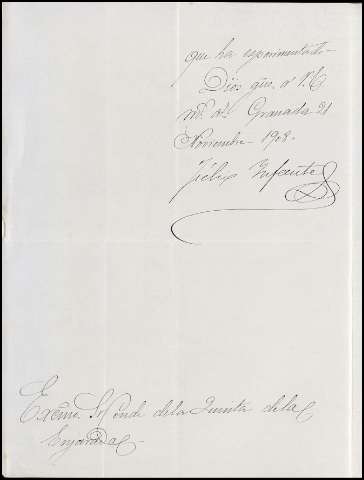 que ha esperimentado.
Dios gue. a V.E.
ms. as. Granada 21
Noviembre 1908.
Félix Infante
Excmo. Sr. Conde de la Quinta de la
Enjarada